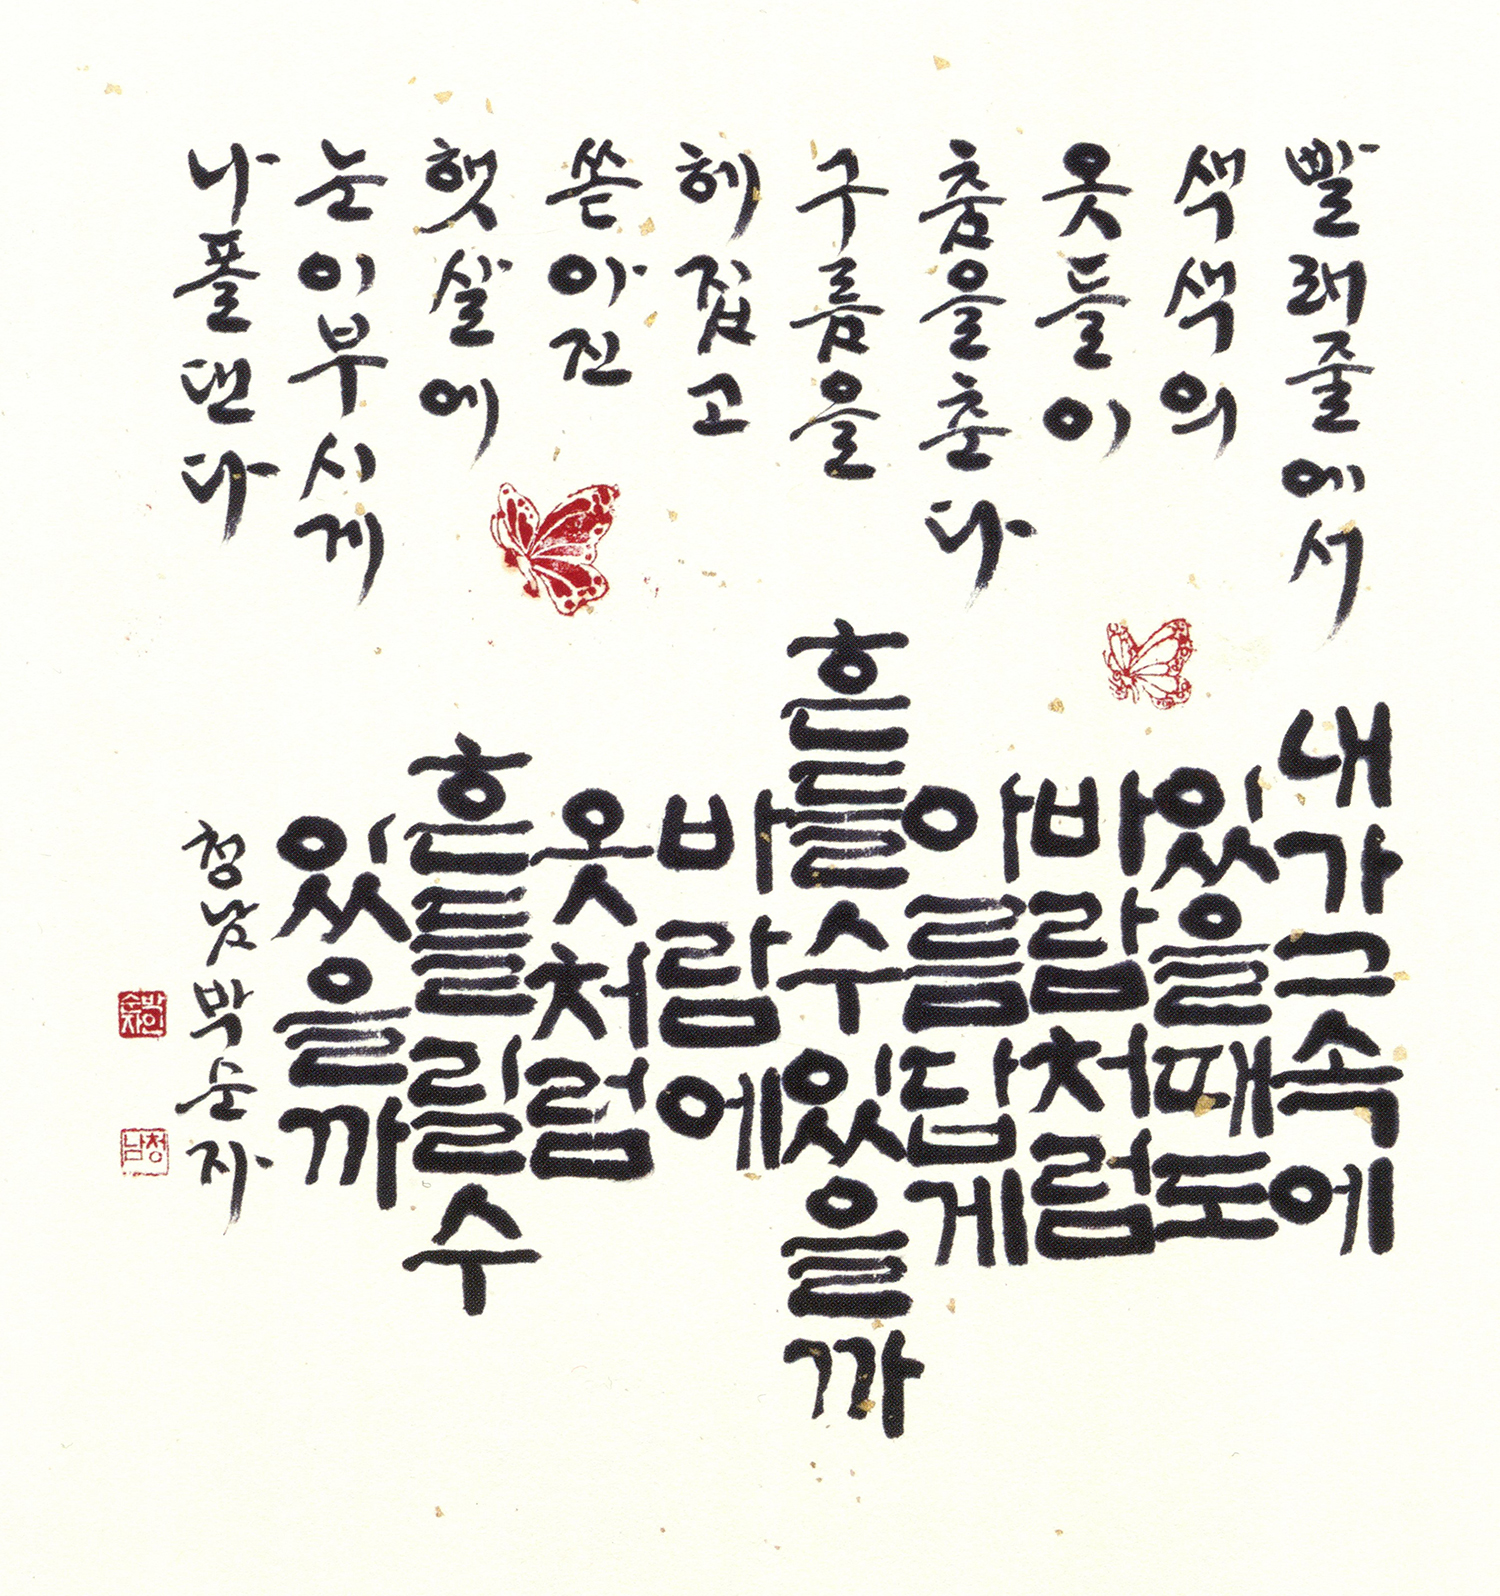 빨래줄에서
색색의
옷들이
춤을춘다
구름을
헤집고
쏟아진
햇살에
눈이부시게
나풀댄다
내가그속에
있을때도
바람처럼
아름답게
흔들수있을까
바람에
옷처럼
흔들릴수
있을까
청남박순자
박순자인
청남